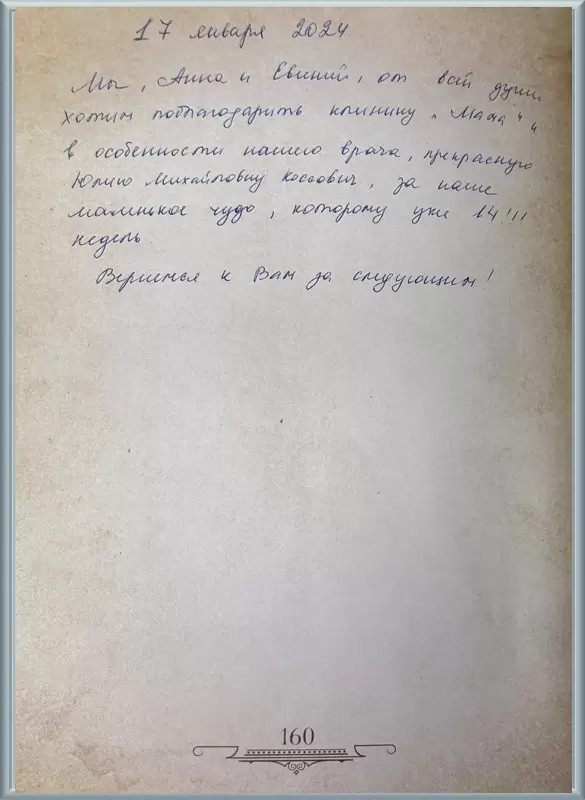 17 января 2024
Мы, Анна и Евгений, от всей души
хотим поблагодарить клинику "Мама" и
в особенности нашего врача, прекрасную
Юлию Михайловну Коссович, за наше
маленькое чудо, которому уже 14!!!
недель
Вернемся к Вам за следующим!
160